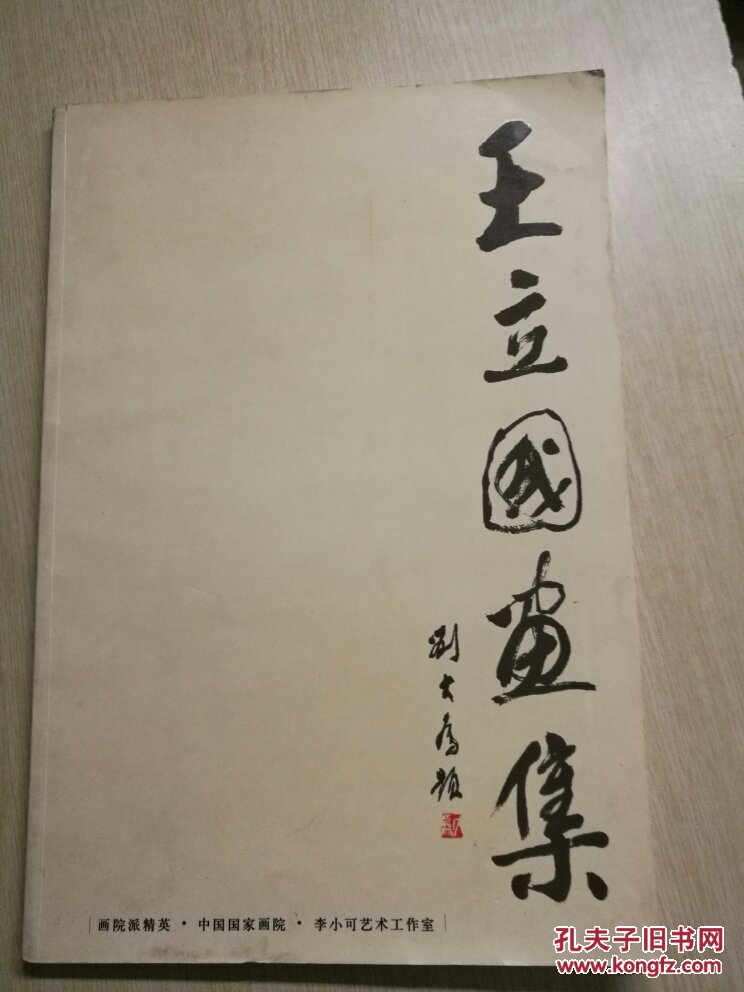 王立國畫集
劉大為題
画院派精英·中国国家画院·李小可艺术工作室
孔夫子旧书网
www.kongfz.com